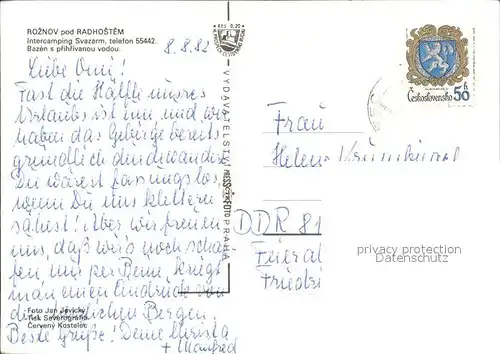 ROŽNOV pod RADHOŠTĚM
Intercamping Svazarm, telefon 55442.
Bazén s přihřívanou vodou.
8.8.82
Liebe Omi!
Fast die Hälfte unsres
Urlaubes ist um und wir
haben das Gebirge bereits
gründlich durchwandert.
Du wärest fassungslos,
wenn Du uns klettern
sähest! Aber wir freuen
uns, daß wir's noch schaf-
fen nur per Beine kriegt
man einen Eindruck von
die herrlichen Bergen.
Beste Grüße! Deine Christa
+ Manfred
Foto Jan Jevický
Tisk Severografia
Červený Kostelec
Kčs 0,20
VYDAVATELSTVÍ
PRESSFOTO
PRAHA
Československo 50 h
Frau
Helene
DDR 81
privacy protection
Datenschutz